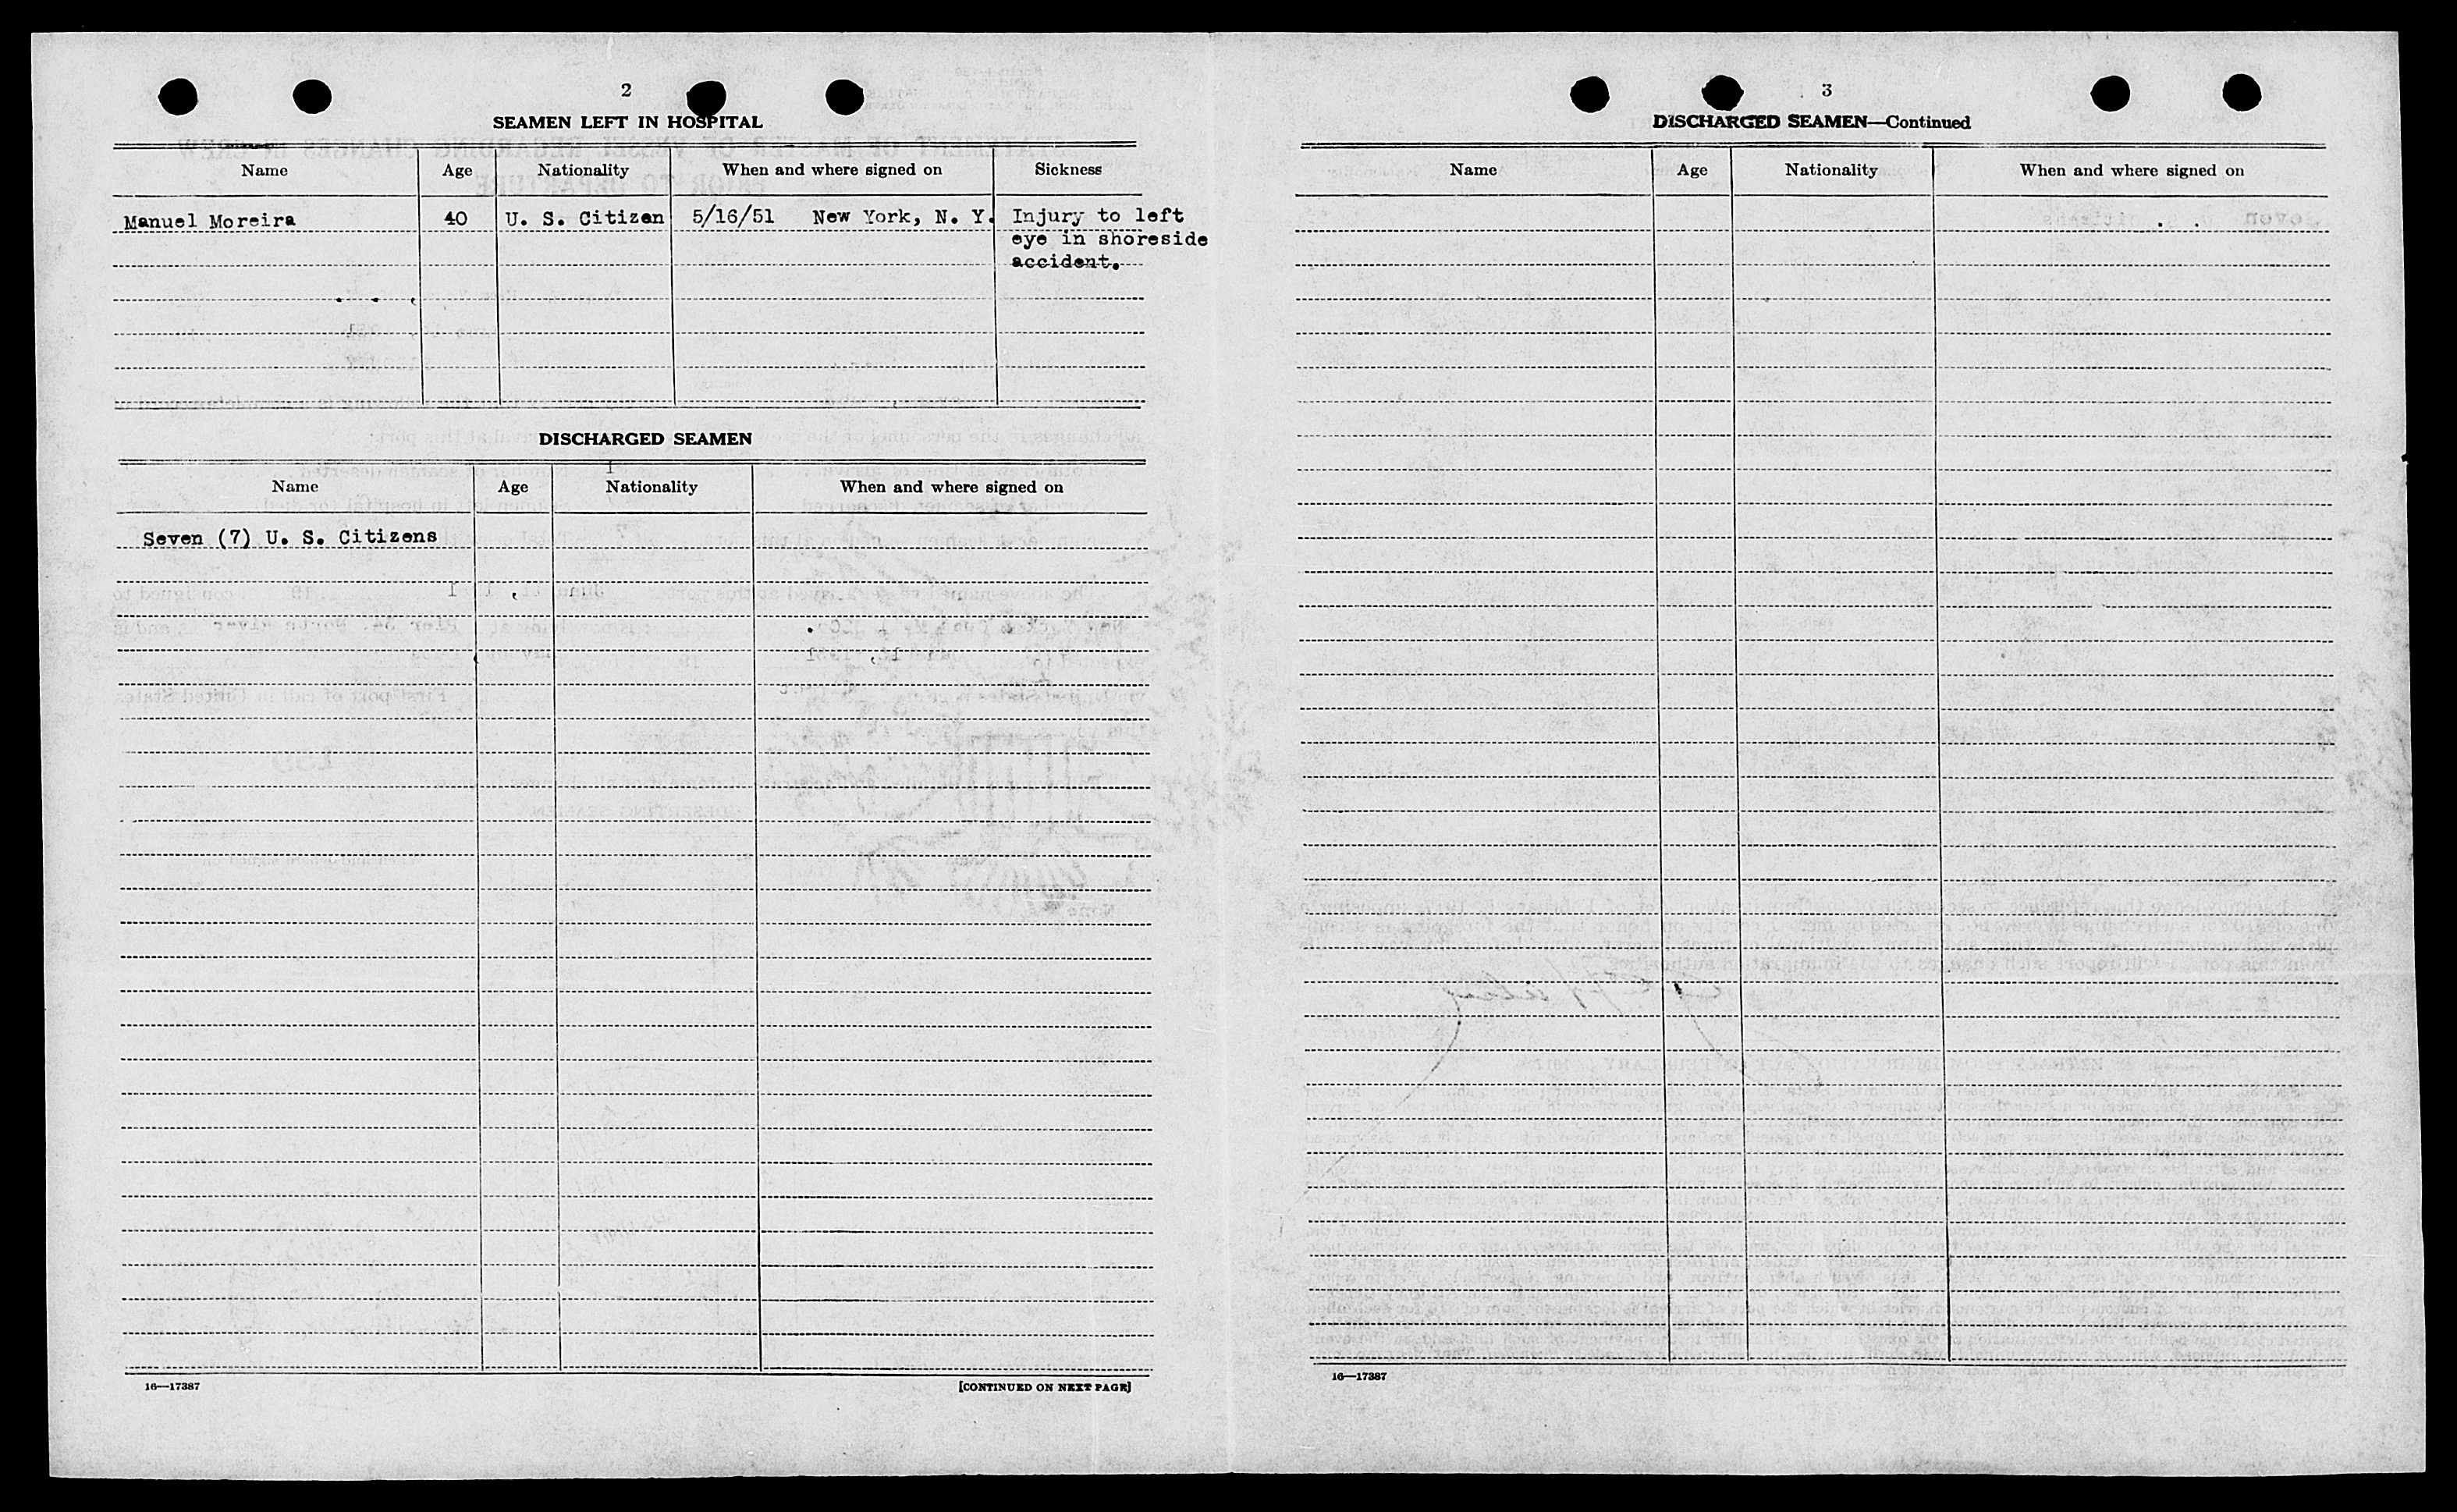 2
SEAMEN LEFT IN HOSPITAL
Name Age Nationality When and where signed on Sickness
Manuel Moreira 40 U. S. Citizen 5/16/51 New York, N. Y. Injury to left
eye in shoreside
accident.
DISCHARGED SEAMEN
Name Age Nationality When and where signed on
Seven (7) U. S. Citizens
16—17387 [CONTINUED ON NEXT PAGE]
3
DISCHARGED SEAMEN—Continued
Name Age Nationality When and where signed on
16—17387